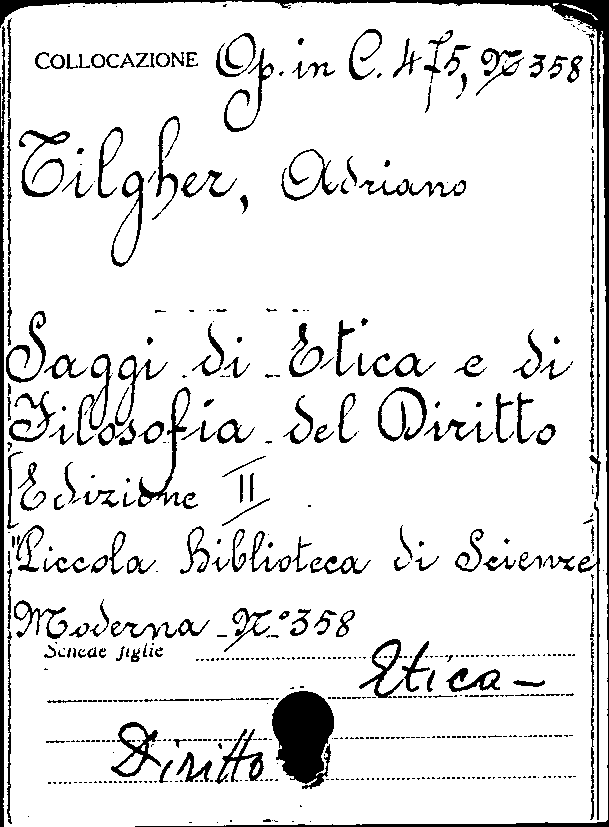 COLLOCAZIONE Op. in C. 475, No 358
Tilgher, Adriano
Saggi di Etica e di
Filosofia del Diritto
[Edizione II
"Piccola Biblioteca di Scienze
Moderna - N.° 358
Schede figlie
Etica -
Diritto